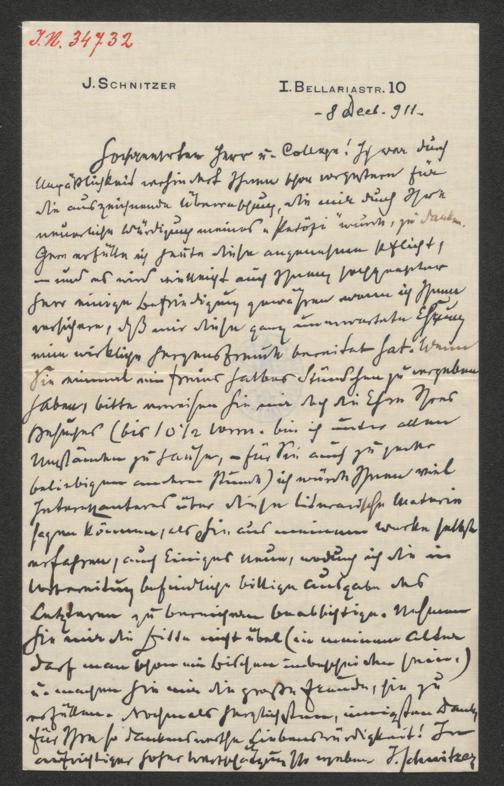 J.N. 34732
J. Schnitzer
I. Bellariastr. 10
- 8 Decb. 911 -
Hochgeehrter Herr u. College! Ich war durch
Unpäßlichkeit verhindert Ihnen schon vorgestern für
die auszeichnende Überraschung, die mir durch Ihre
neuerliche Würdigung meines "Petöfi" wurde, zu danken.
Gern erfülle ich heute diese angenehme Pflicht,
- und es wird vielleicht auch Ihnen, hochgeehrter
Herr einige Befriedigung gewähren wenn ich Ihnen
versichere, daß mir diese ganz unerwartete Ehrung
eine wirkliche Herzensfreude bereitet hat. Wenn
Sie einmal ein freies halbes Stündchen zu vergeben
haben, bitte erweisen Sie mir doch die Ehre Ihres
Besuches (bis 10 1/2 Vorm. bin ich unter allen
Umständen zu Hause, - für Sie auch zu jeder
beliebigen anderen Stunde) ich würde Ihnen viel
Interessanteres über diese literarische Materie
sagen können, als Sie aus meinem Werke selbst
erfahren, auch Einiges Neue, wodurch ich die in
Vorbereitung befindliche billige Ausgabe des
Letzteren zu bereichern beabsichtige. Nehmen
Sie mir die Bitte nicht übel (in meinem Alter
darf man schon ein bischen unbescheiden sein,)
u. machen Sie mir die große Freude, sie zu
erfüllen. Nochmals herzlichsten, innigsten Dank
für Ihre so dankenswerthe Liebenswürdigkeit! In
aufrichtiger hoher Werthschätzung Ihr ergebener J. Schnitzer